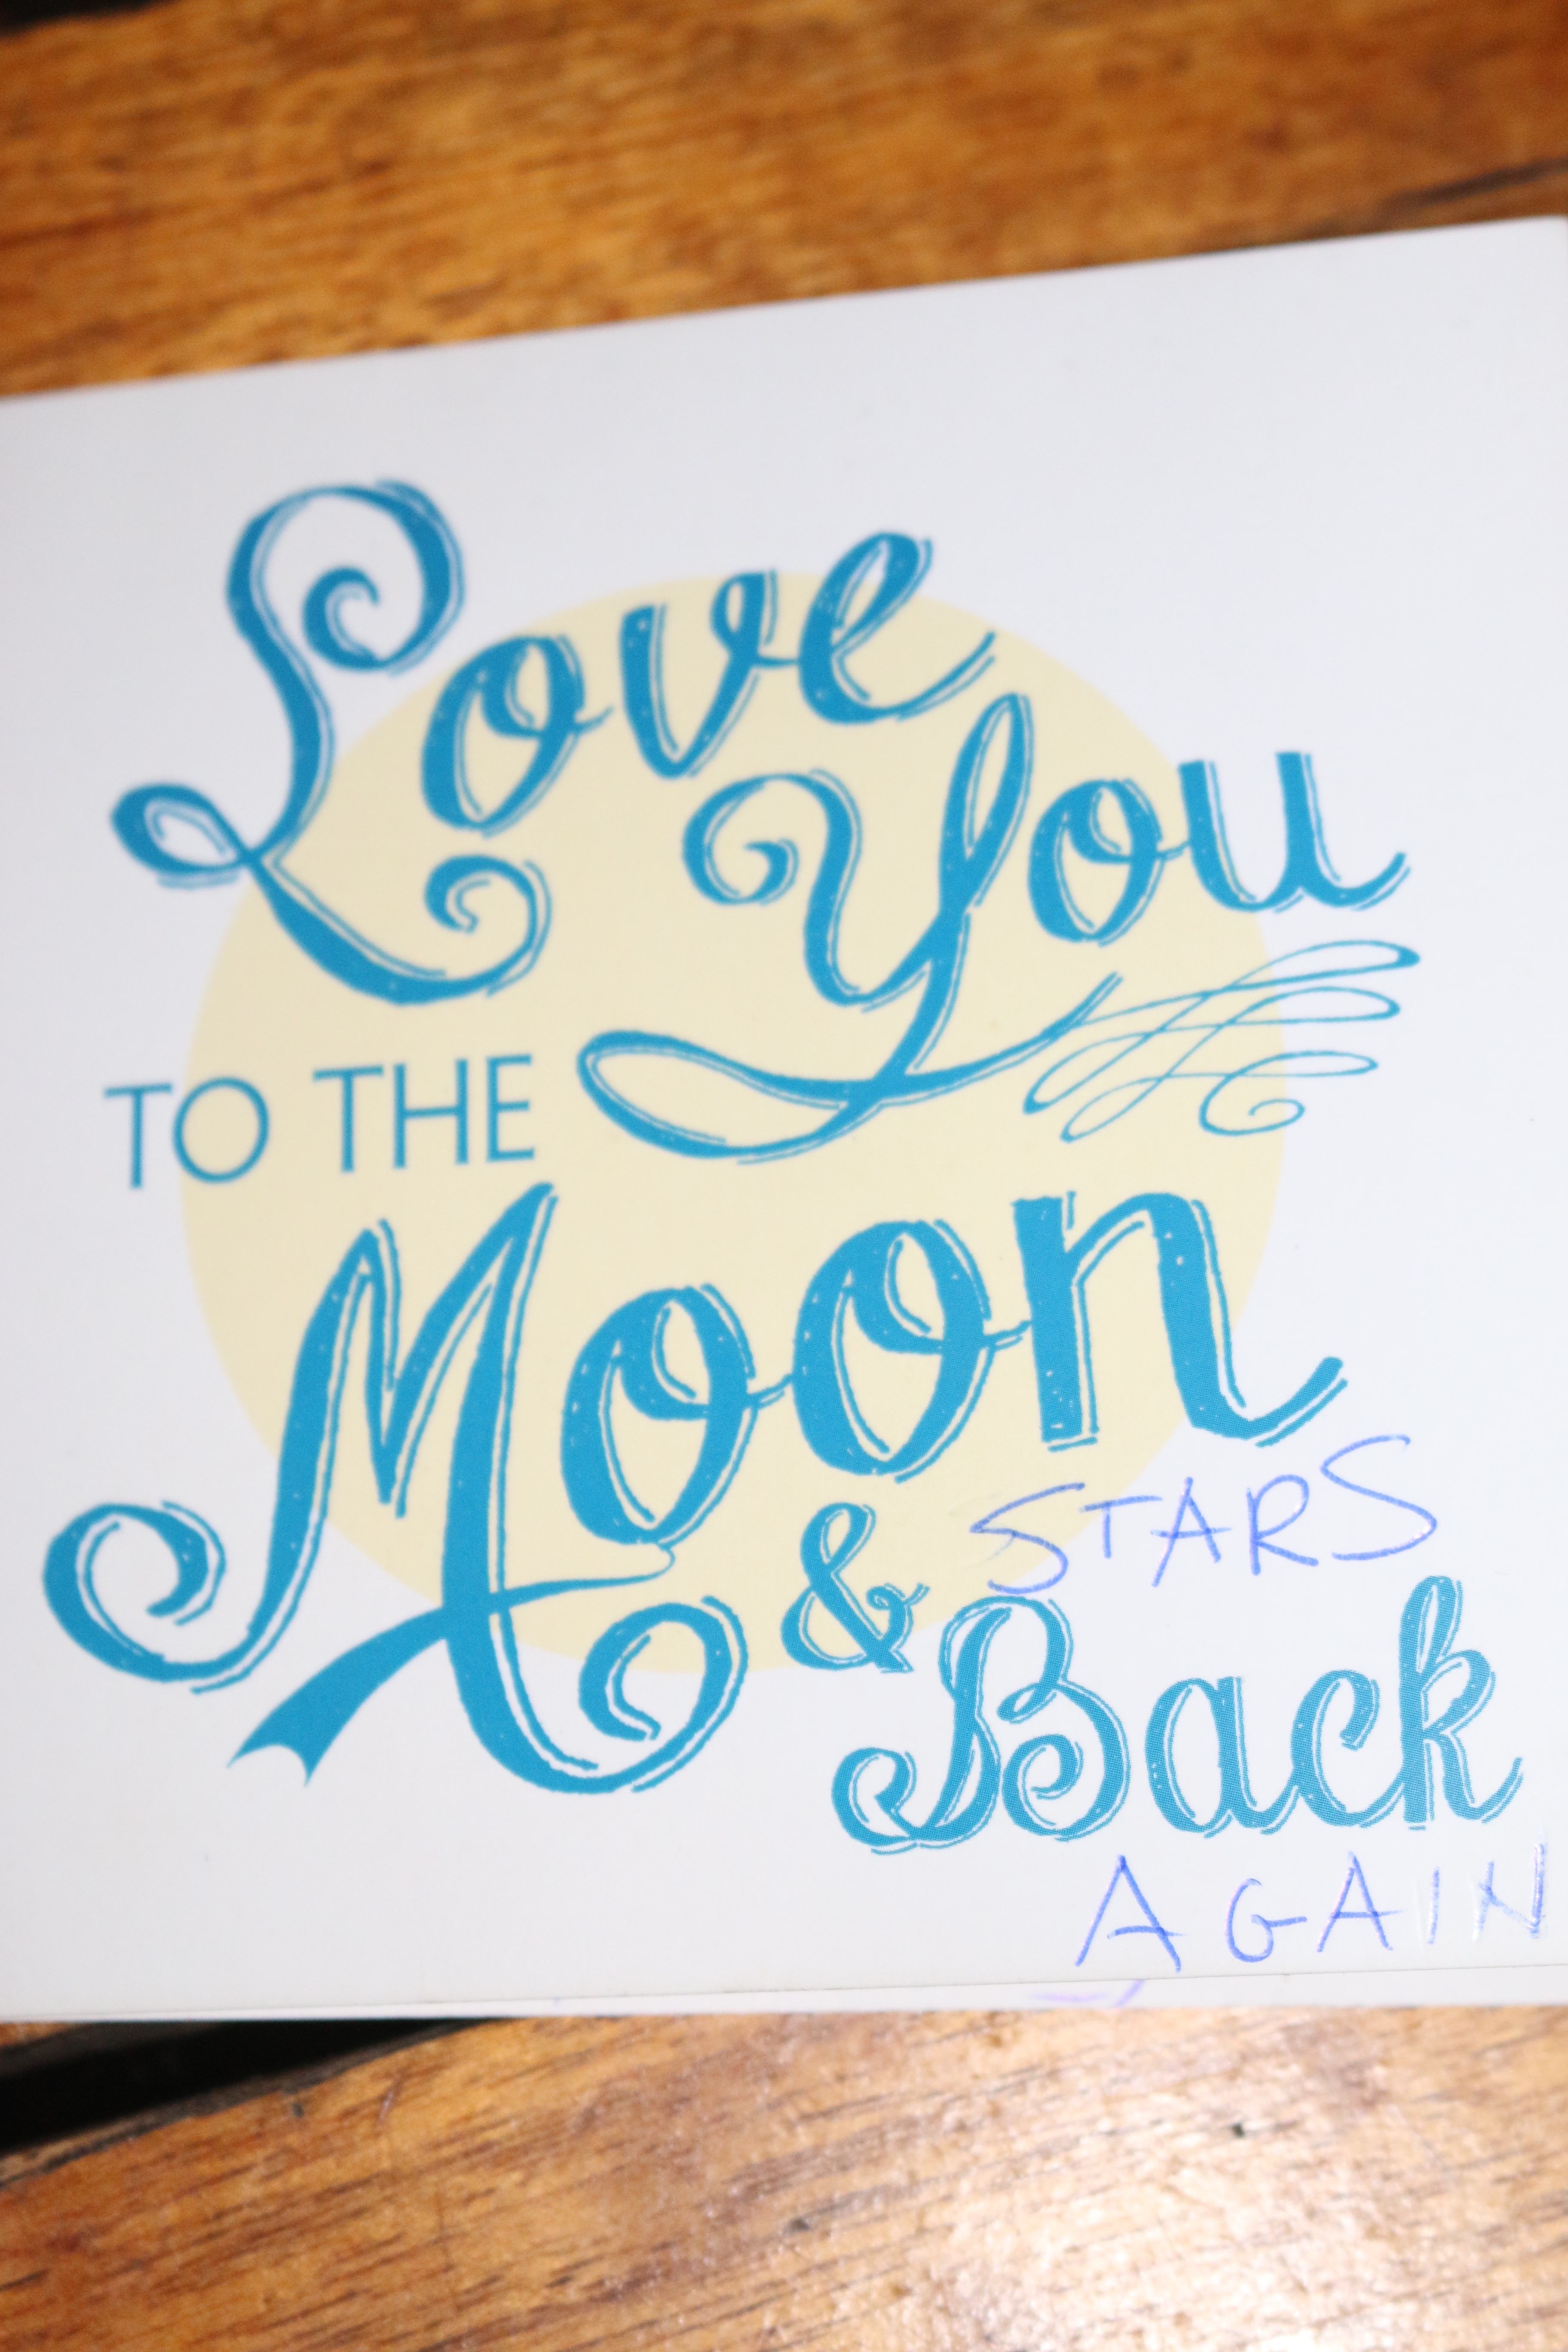 Love
You
TO THE
Moon
& STARS
Back
AGAIN